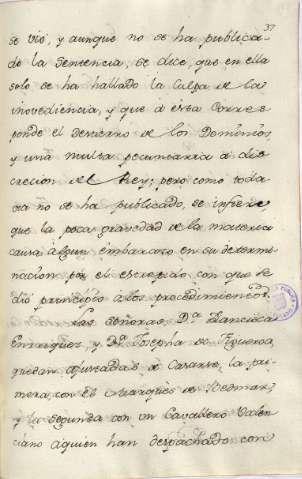 37
se vió, y aunque no se ha publica-
do la Sentencia, se dice, que en ella
solo se ha hallado la Culpa de la
inovediencia, y que á esta Corres-
ponde el destierro de los Dominios,
y una multa pecuniaria á dis-
crecion del Rey; pero como toda-
via no se ha publicado, se infiere
que la poca gravedad de la materia
causa algun embarazo en su determi-
nacion por el estrepido con que se
dió principio a los procedimientos.
Las Señoras, D.ª Francisca
Enrriquez y D.ª Josepha de Figueroa,
quedan ajustadas á Casarse, la pri-
mera con el Marques de Bedmar,
y la segunda con un Cavallero Valen-
ciano a quien han despachado con